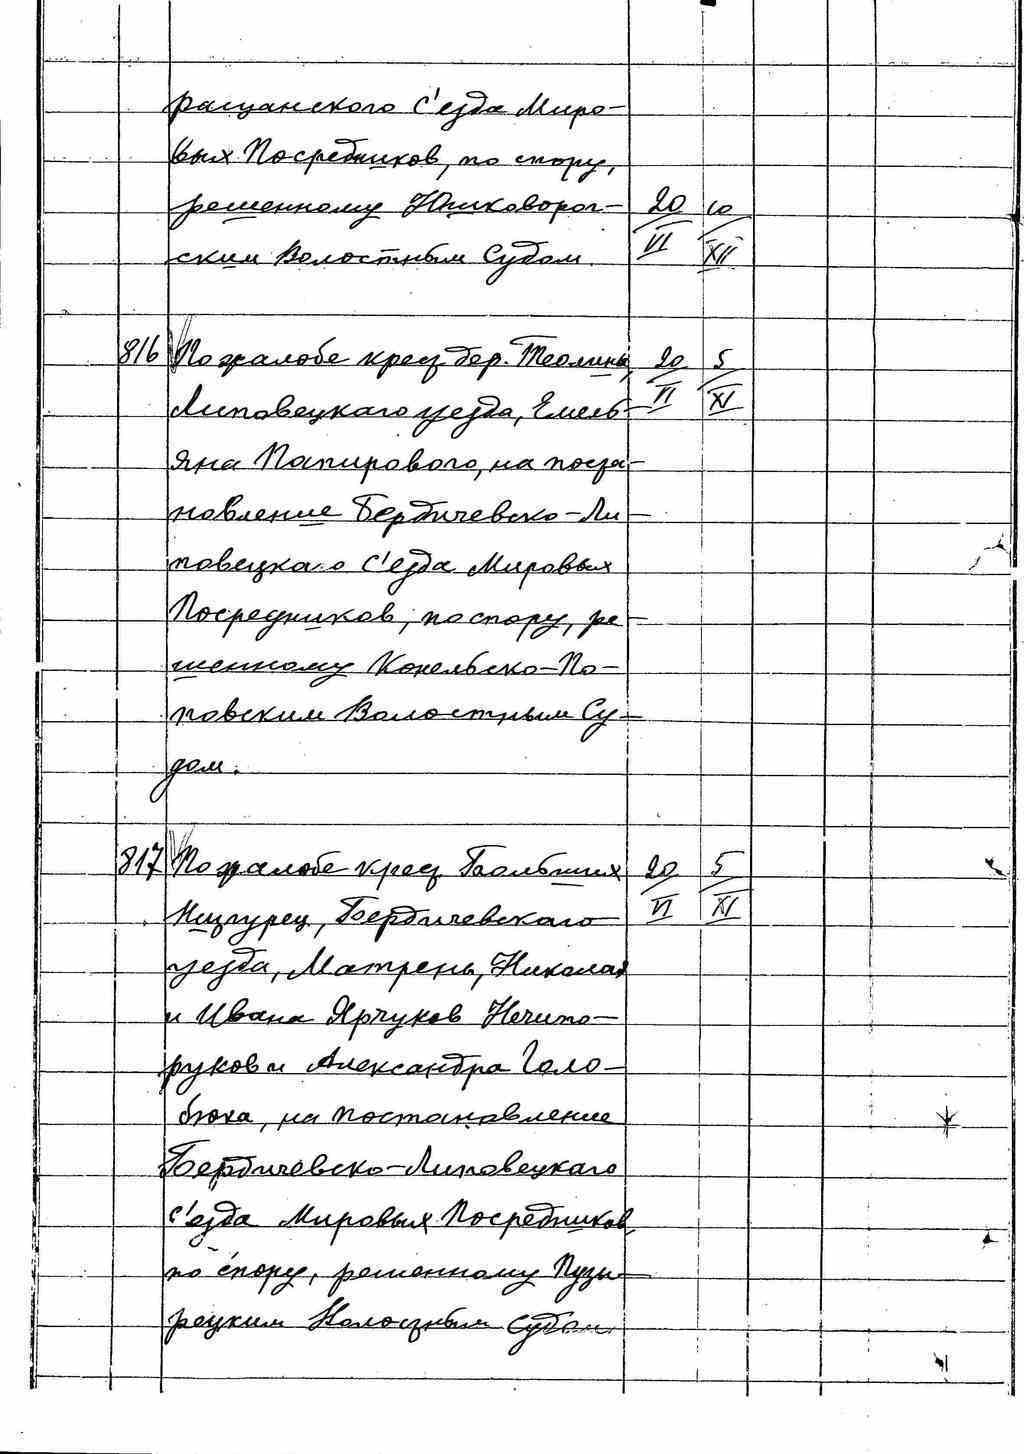 ращанского с'езда Миро-
вых Посредников, по спору,
решенному Юшковорог- 20 10
ским Волостным Судом. VI XII
816 По жалобе крест. дер. Теолины, 20 5
Липовецкаго уезда, Емель- VI XI
яна Папирового, на поста-
новление Бердичевско-Ли-
повецкаго с'езда Мировых
Посредников, по спору, ре-
шенному Конельско-По-
повским Волостным Су-
дом.
817 По жалобе крест. Больших 20 5
Низгурец, Бердичевскаго VI XI
уезда, Матрены, Николая
и Ивана Ярчуков Нечипо-
руков и Александра Голо-
бюка, на постановление
Бердичевско-Липовецкаго
с'езда Мировых Посредников,
по спору, решенному Пузы-
рецким Волостным Судом.